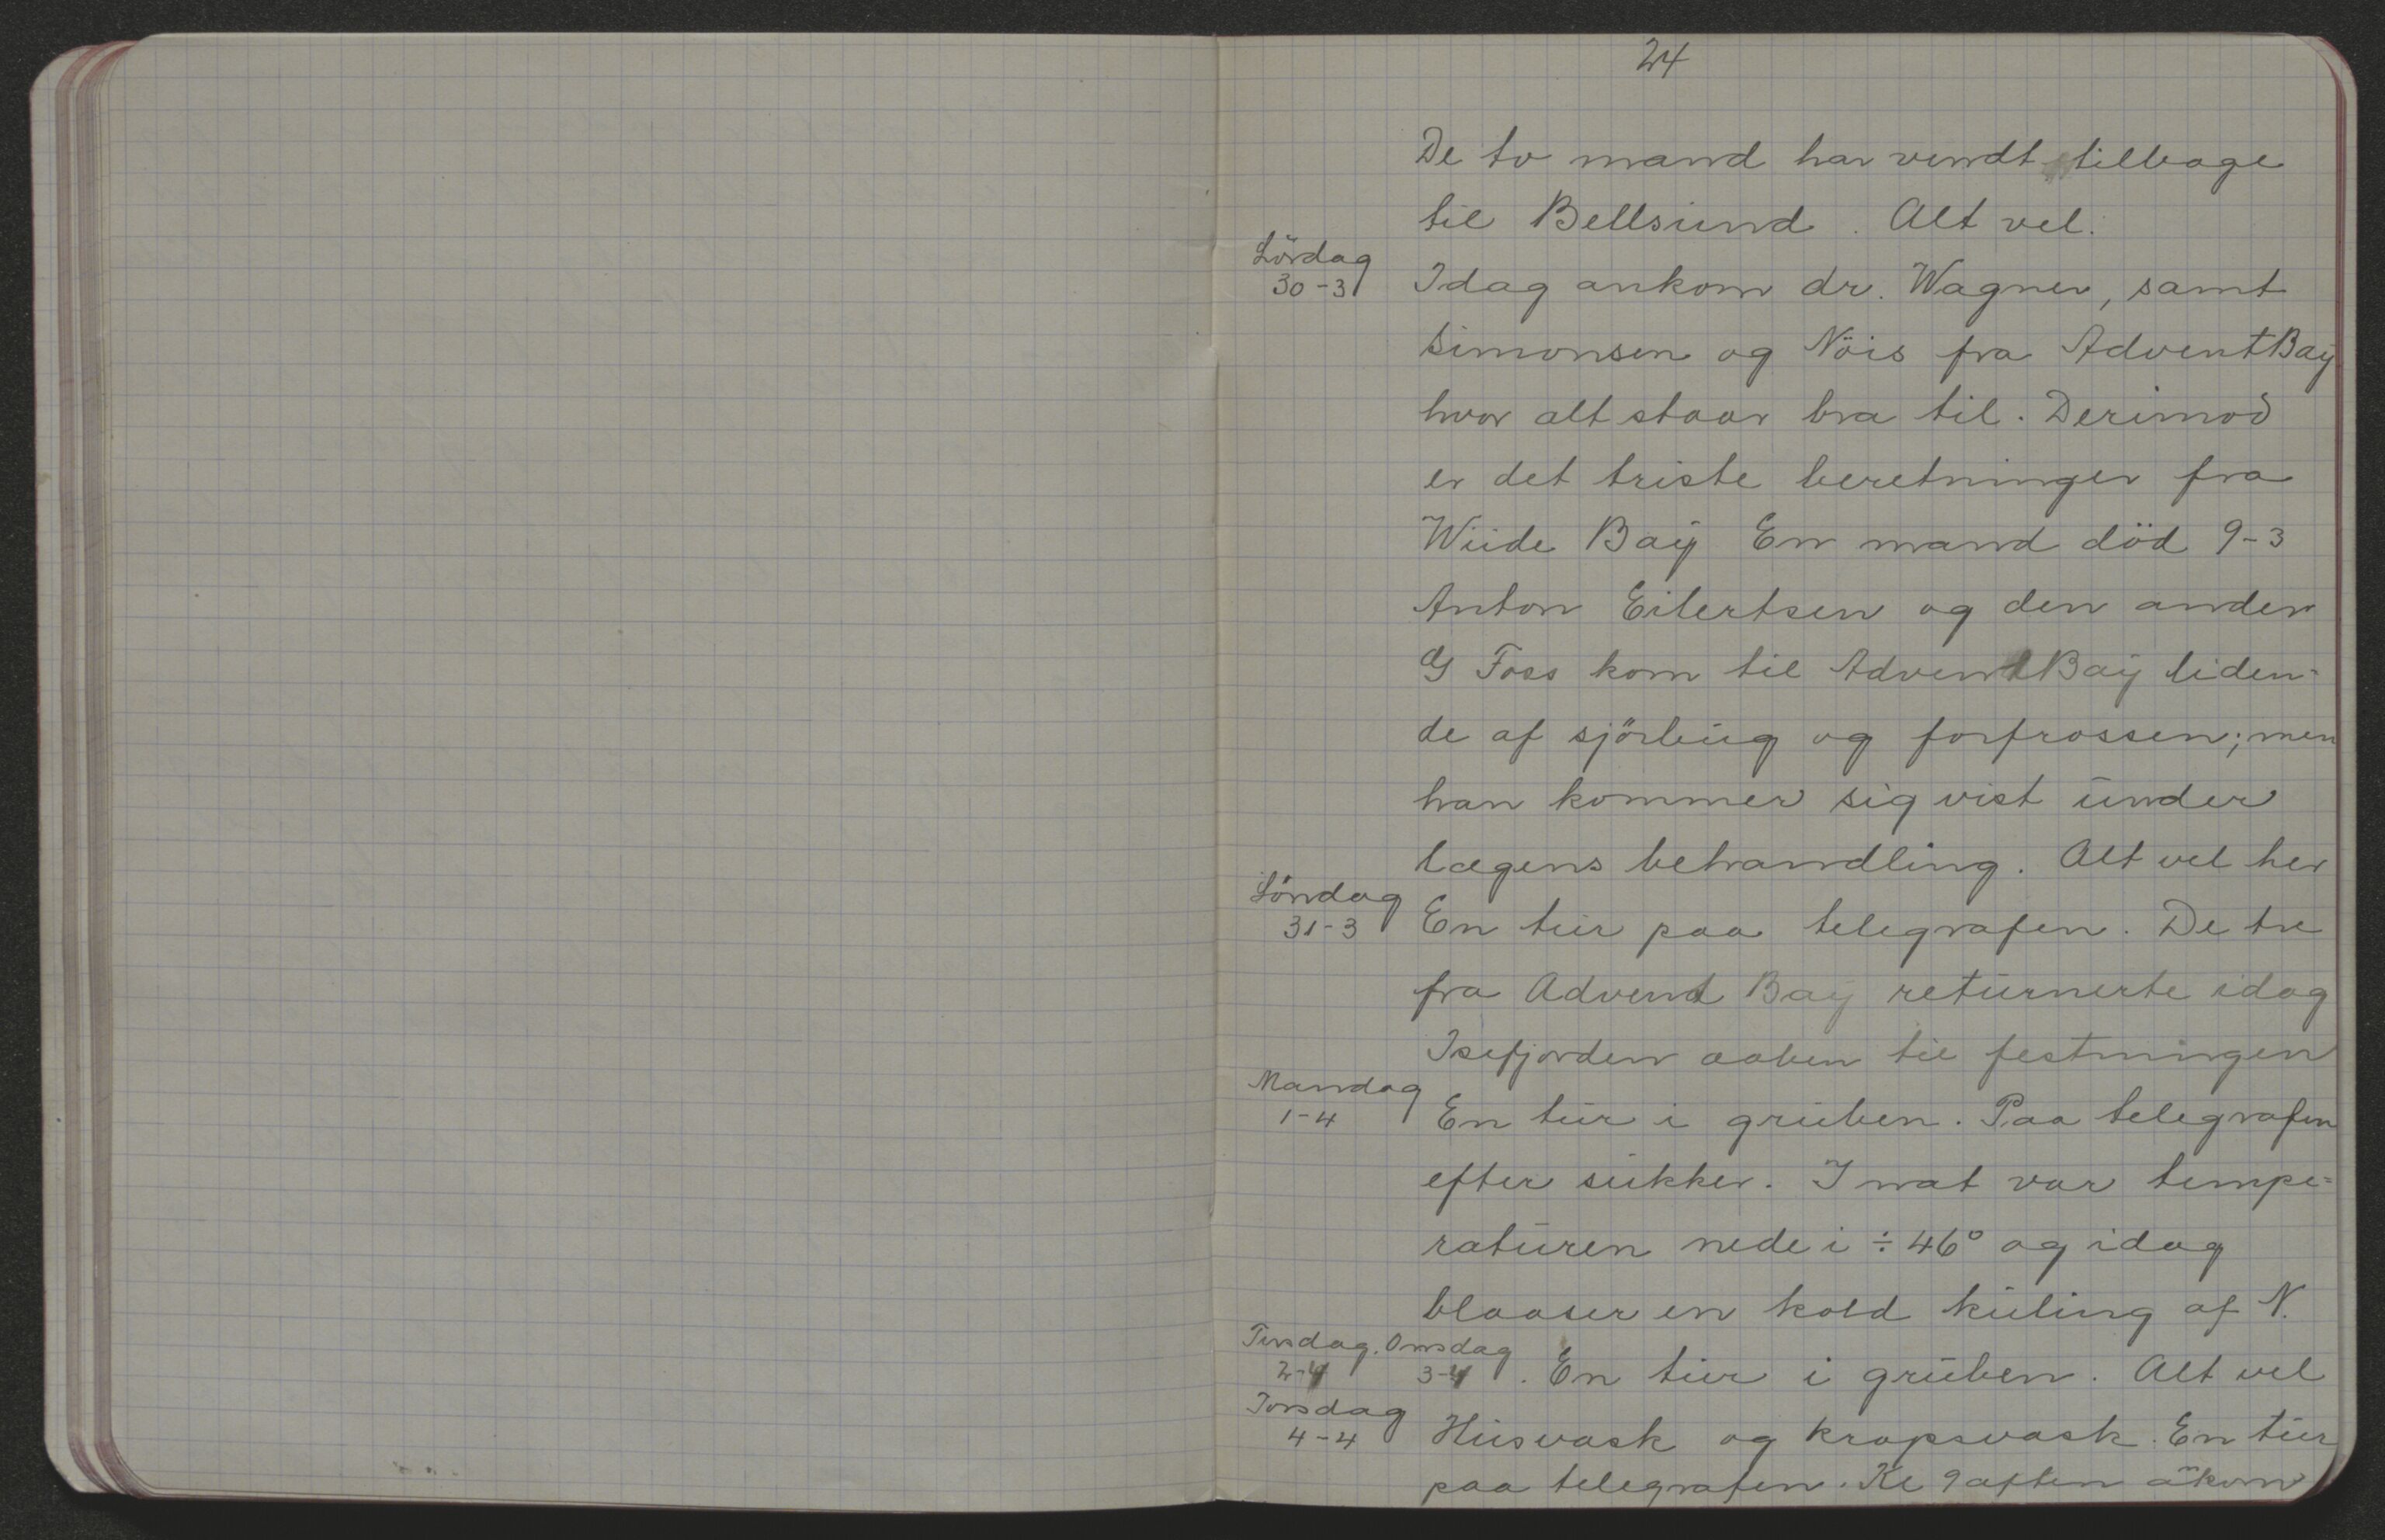 24
De to mand har vendt tilbage
til Bellsund. Alt vel.
Lördag
30-3
Idag ankom dr. Wagner, samt
Simonsen og Nöis fra Advent Bay
hvor alt staar bra til. Derimod
er det triste beretninger fra
Wiide Bay En mand död 9-3
Anton Eilertsen og den anden
G Foss kom til Advent Bay liden-
de af sjörbug og forfrossen; men
han kommer sig vist under
lægens behandling. Alt vel her
Söndag
31-3
En tur paa telegrafen. De tre
fra Advent Bay returnerte idag
Isefjorden aaben til festningen
Mandag
1-4
En tur i gruben. Paa telegrafen
efter sukker. I nat var tempe=
raturen nede i ÷ 46° og idag
blaaser en kold kuling af N.
Tirsdag. Onsdag
2-4 3-4. En tur i gruben. Alt vel
Torsdag
4-4
Husvask og kropsvask. En tur
paa telegrafen. Kl 9 aften ankom